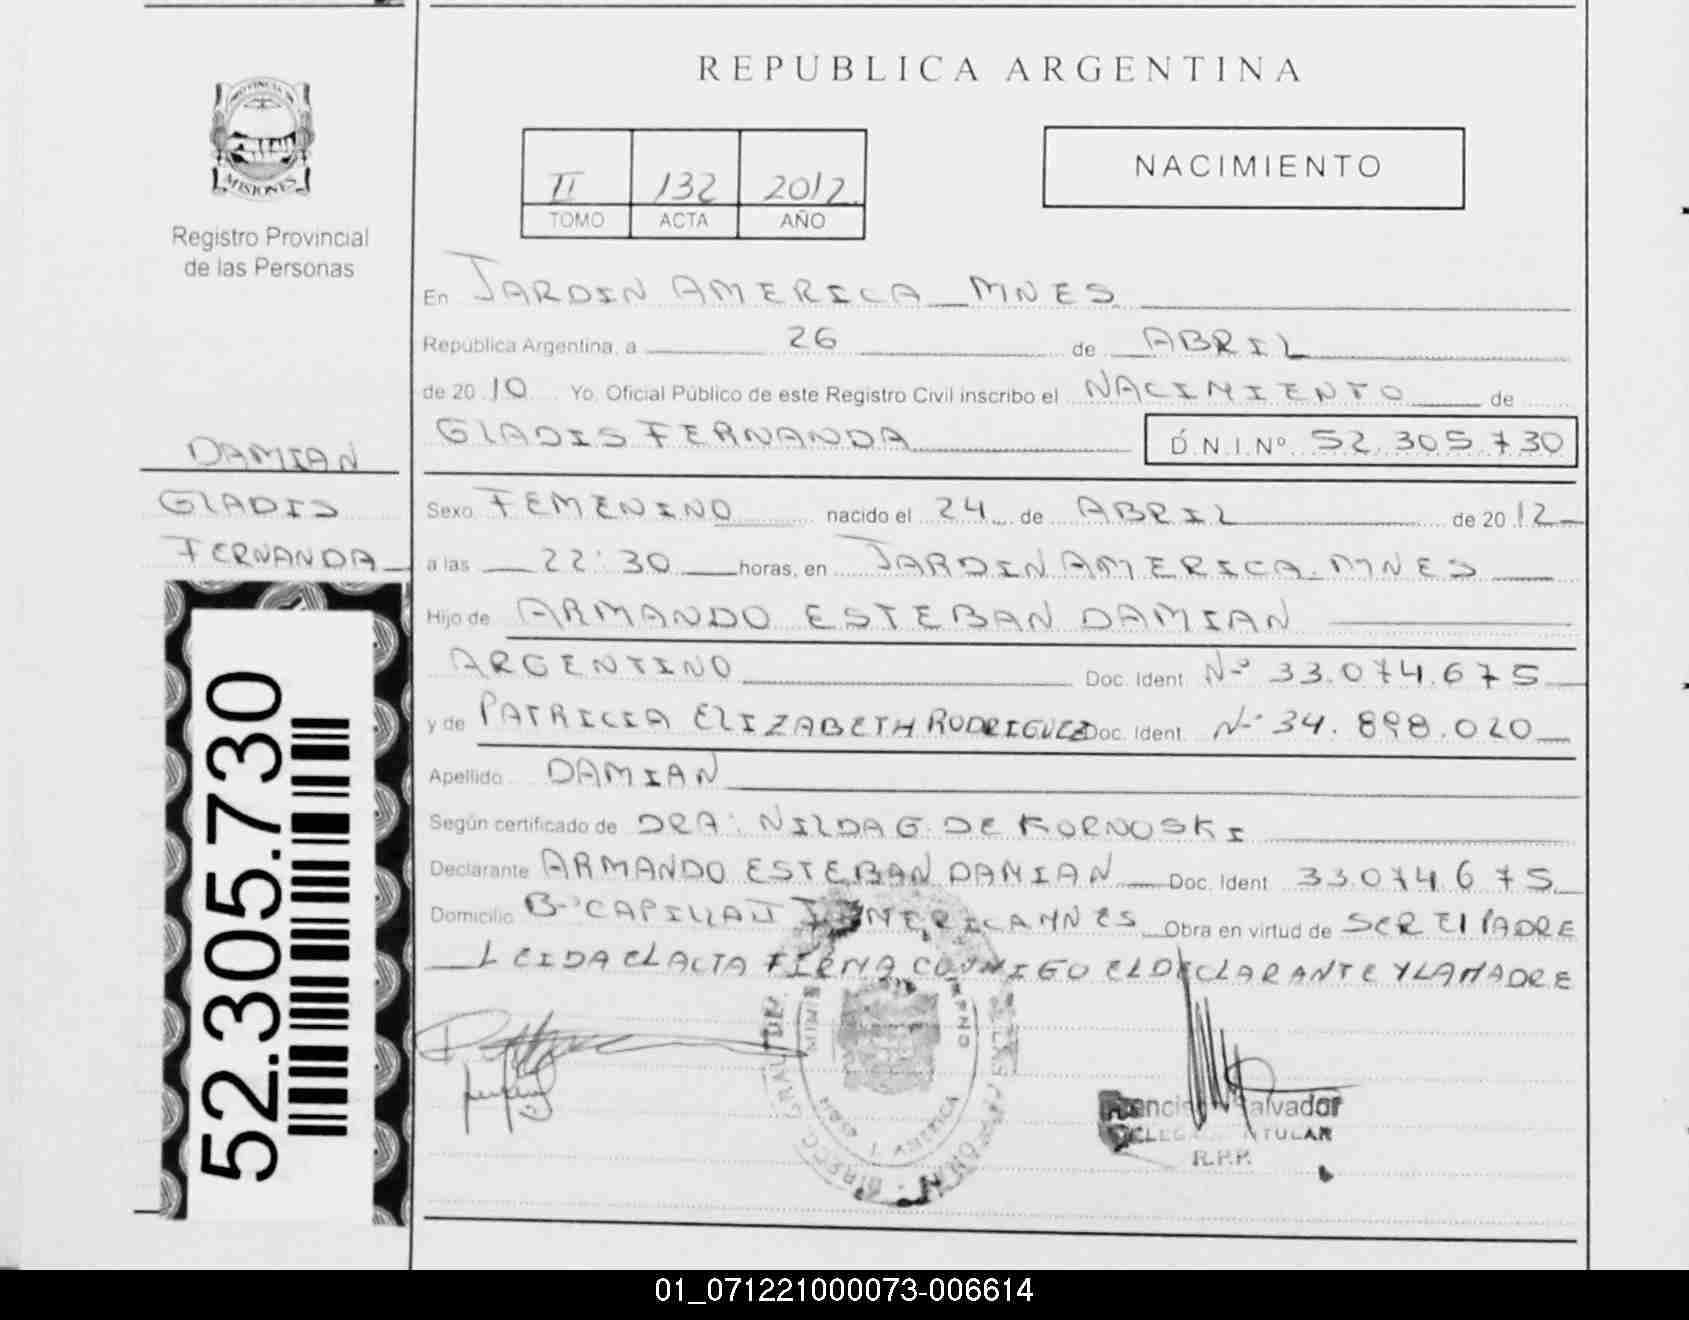 REPUBLICA ARGENTINA
PROVINCIA DE
MISIONES
Registro Provincial
de las Personas
II 132 2012
TOMO ACTA AÑO
NACIMIENTO
En JARDIN AMERICA MNES
República Argentina, a 26 de ABRIL
de 2010 Yo, Oficial Público de este Registro Civil inscribo el NACIMIENTO de
GLADIS FERNANDA D.N.I.Nº 52.305.730
DAMIAN
GLADIS
FERNANDA
52.305.730
Sexo FEMENINO nacido el 24 de ABRIL de 2012
a las 22:30 horas, en JARDIN AMERICA. MNES
Hijo de ARMANDO ESTEBAN DAMIAN
ARGENTINO Doc. Ident. Nº 33.074.675
y de PATRICIA ELIZABETH RODRIGUEZ Doc. Ident. Nº 34.898.020
Apellido DAMIAN
Según certificado de DRA: NILDA G. DE KORNOSKI
Declarante ARMANDO ESTEBAN DAMIAN Doc. Ident. 33.074.675
Domicilio Bº CAPILLA MNES Obra en virtud de SER EL PADRE
LEIDA EL ACTA FIRMA CONMIGO EL DECLARANTE Y LA MADRE
Salvador
TITULAR
R.P.P.
01_071221000073-006614